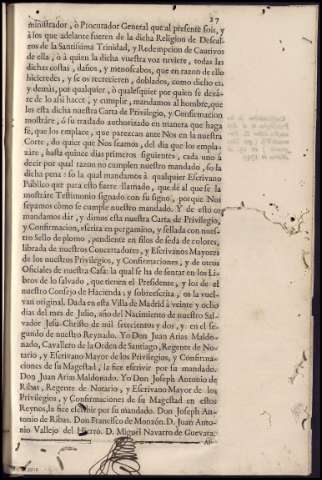 27
ministrador, ò Procurador General que al presente sois, y
à los que adelante fueren de la dicha Religion de Descal-
ços de la Santissima Trinidad, y Redempcion de Cautivos
de ella, ò à quien la dicha vuestra voz tuviere, todas las
dichas costas, daños, y menoscabos, que en razon de ello
hizieredes, y se os recrecieren, doblados, como dicho es;
y demàs, por qualquier, ò qualesquier por quien se dexà-
re de lo assi hazer, y cumplir, mandamos al hombre, que
les esta dicha nuestra Carta de Privilegio, y Confirmacion
mostràre, ò su traslado authorizado en manera que haga
fè, que los emplace, que parezcan ante Nos en la nuestra
Corte, do quier que Nos seamos, del dia que los empla-
zàre, hasta quinze dias primeros siguientes, cada uno à
decir por qual razon no cumplen nuestro mandado, so la
dicha pena: so la qual mandamos à qualquier Escrivano
Publico que para esto fuere llamado, que dè al que se la
mostràre Testimonio signado con su signo, porque Nos
sepamos cómo se cumple nuestro mandado. Y de esto os
mandamos dàr, y dimos esta nuestra Carta de Privilegio,
y Confirmacion, escrita en pergamino, y sellada con nues-
tro Sello de plomo, pendiente en filos de seda de colores,
librada de nuestros Concertadores, y Escrivanos Mayores
de los nuestros Privilegios, y Confirmaciones, y de otros
Oficiales de nuestra Casa: la qual se ha de sentar en los Li-
bros de lo salvado, que tienen el Presidente, y los de el
nuestro Consejo de Hacienda; y sobrescrita, os la vuel-
van original. Dada en esta Villa de Madrid à veinte y ocho
dias del mes de Julio, año del Nacimiento de nuestro Sal-
vador Jesu-Christo de mil setecientos y dos, y en el se-
gundo de nuestro Reynado. Yo Don Juan Arias Maldo-
nado, Cavallero de la Orden de Santiago, Regente de No-
tario, y Escrivano Mayor de los Privilegios, y Confirma-
ciones de su Magestad, la fice escrivir por su mandado.
Don Juan Arias Maldonado. Yo Don Joseph Antonio de
Ribas, Regente de Notario, y Escrivano Mayor de los
Privilegios, y Confirmaciones de su Magestad en estos
Reynos, la fice escrivir por su mandado. Don Joseph An-
tonio de Ribas. Don Francisco de Monzòn. D. Juan Anto-
nio Vallejo del Hierro. D. Miguel Navarro de Guevara.